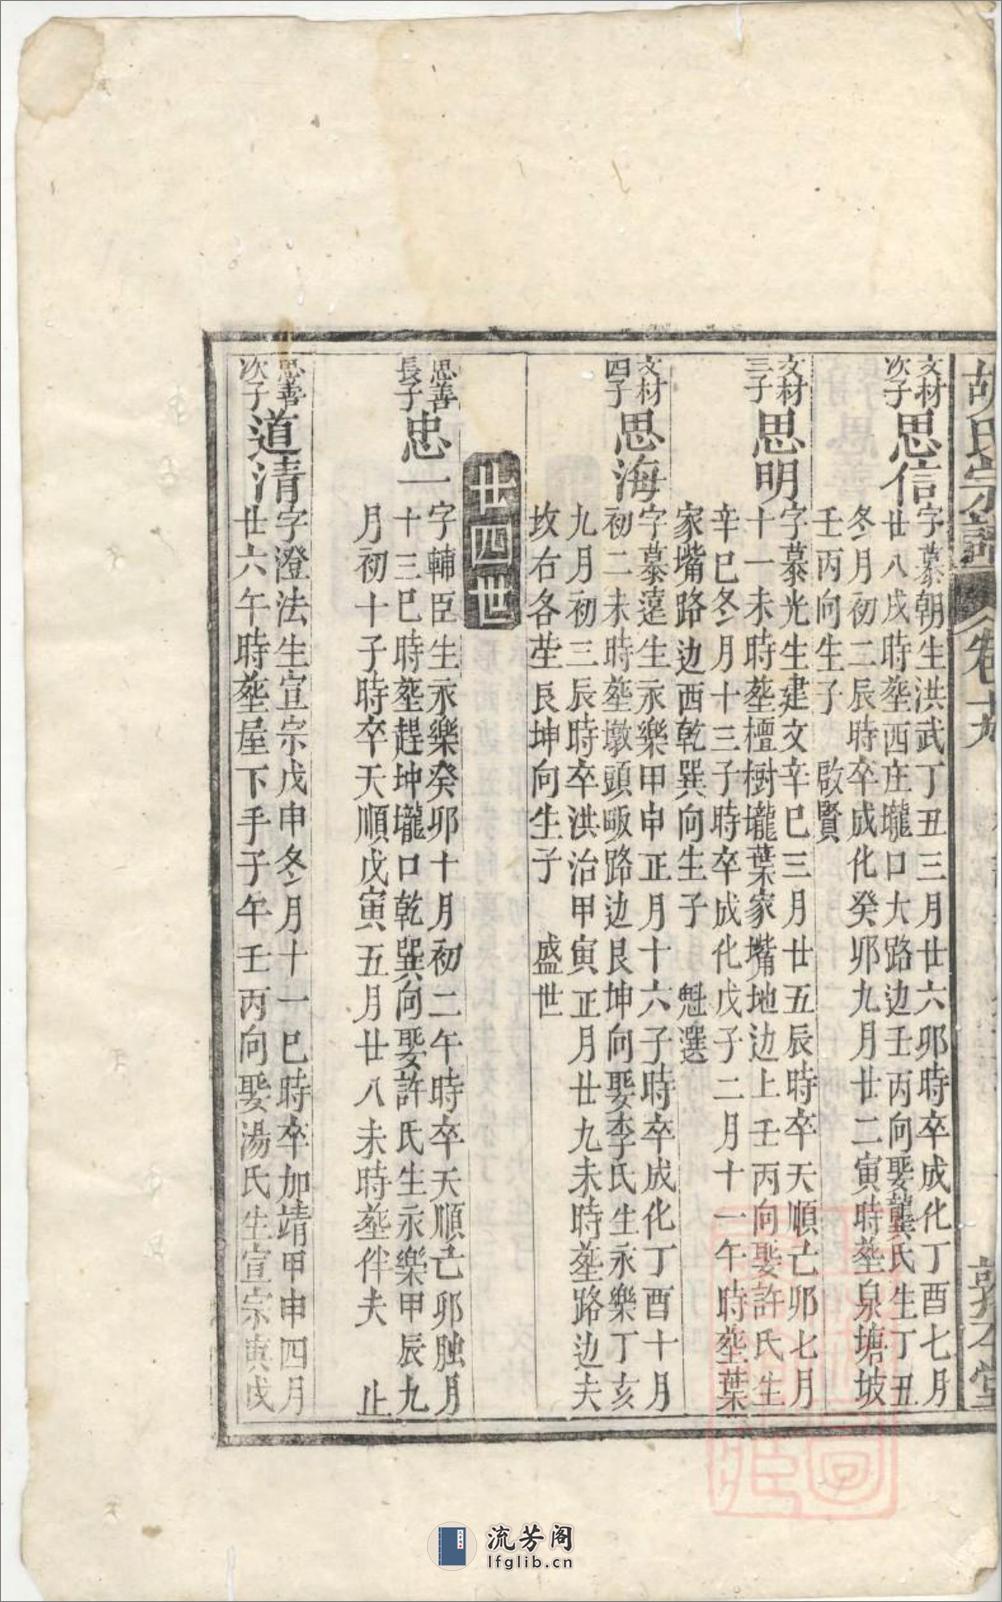 胡氏宗譜 卷十九 敦本堂
文材次子
思信
字慕朝生洪武丁丑三月廿六卯時卒成化丁酉七月
廿八戌時塟西庄壠口大路边壬丙向娶龔氏生丁丑
冬月初二辰時卒成化癸卯九月廿二寅時塟泉塘坡
壬丙向生子 啟賢
文材三子
思明
字慕光生建文辛巳三月廿五辰時卒天順己卯七月
十一未時塟檀樹壠葉家嘴地边上壬丙向娶許氏生
辛巳冬月十三子時卒成化戊子二月十一午時塟葉
家嘴路边西乾巽向生子 魁選
文材四子
思海
字慕遠生永樂甲申正月十六子時卒成化丁酉十月
初二未時塟墩頭畈路边艮坤向娶李氏生永樂丁亥
九月初三辰時卒洪治甲寅正月廿九未時塟路边夫
坟右各茔艮坤向生子 盛世
廿四世
思善長子
忠一
字輔臣生永樂癸卯十月初二午時卒天順己卯腊月
十三巳時塟趕坤壠口乾巽向娶許氏生永樂甲辰九
月初十子時卒天順戊寅五月廿八未時塟伴夫 止
思善次子
道清
字澄法生宣宗戊申冬月十一巳時卒加靖甲申四月
廿六午時塟屋下手子午壬丙向娶湯氏生宣宗庚戌
流芳阁
lfglib.cn